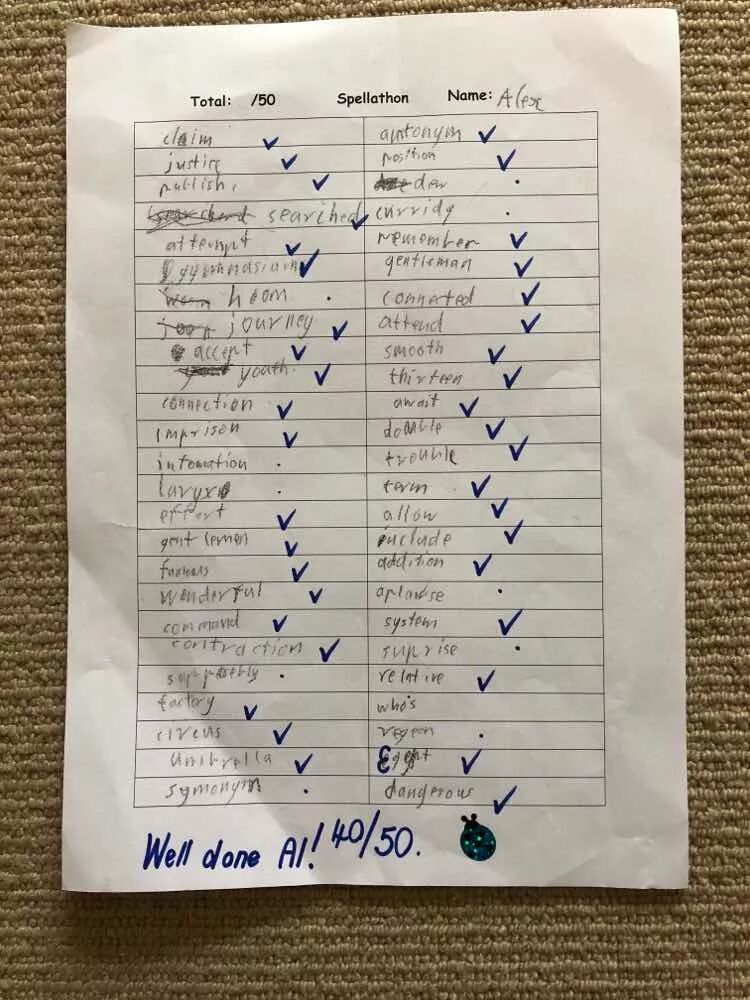 Total: /50 Spellathon Name: Alex
claim ✓ antonym ✓
justice ✓ position ✓
publish, ✓ der .
searched ✓ curridg .
attempt ✓ remember ✓
gymnasium ✓ gentleman ✓
hoom . connected ✓
journey ✓ attend ✓
accept ✓ smooth ✓
youth. ✓ thirteen ✓
connection ✓ await ✓
imprison ✓ double ✓
intomation . trouble ✓
laryx . term ✓
effort ✓ allow ✓
gentlemen ✓ include ✓
famous ✓ addition ✓
wonderful ✓ aplawse .
command ✓ system ✓
contraction ✓ suprise .
. relative ✓
factory ✓ who's
circus ✓ regeon .
umbrella ✓ ✓
symonym . dangerous ✓
Well done Al! 40/50.